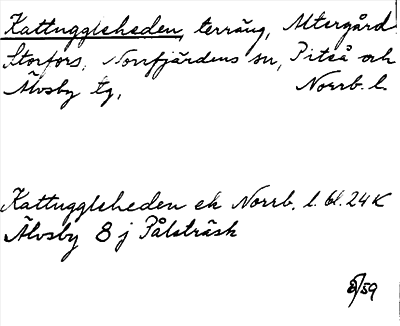 Kattuggleheden, terräng, Altergård
Storfors, Norrfjärdens sn, Piteå och
Älvsby tg, Norrb. l.
Kattuggleheden ek Norrb. l. bl. 24 K
Älvsby 8 j Pålsträsk
/59